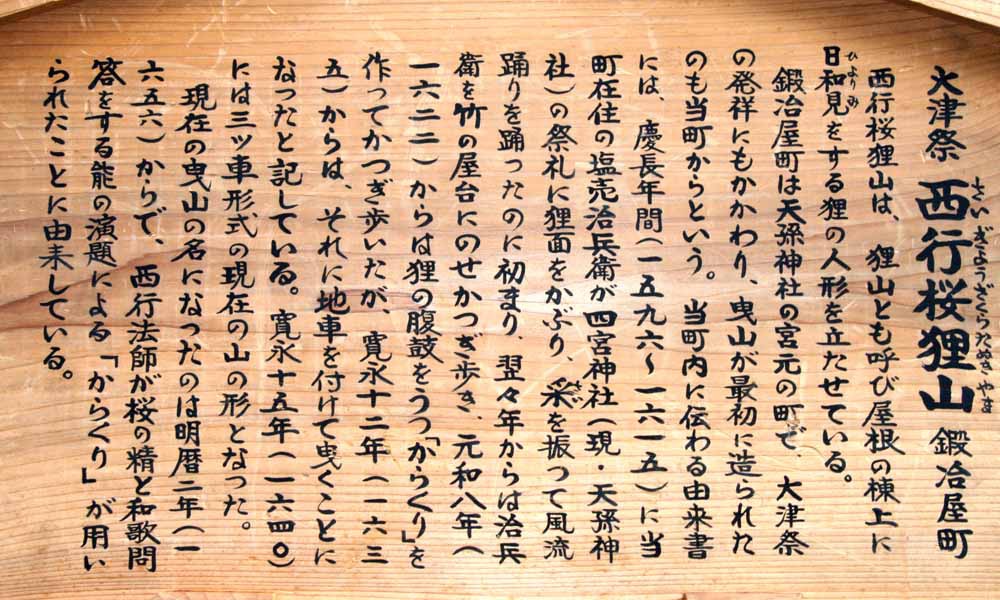 大津祭 西行桜狸山 鍛冶屋町
さいぎようざくらたぬきやま
西行桜狸山は、狸山とも呼び屋根の棟上に
日和見をする狸の人形を立たせている。
ひよりみ
鍛冶屋町は天孫神社の宮元の町で、大津祭
の発祥にもかかわり、曳山が最初に造られた
のも当町からという。当町内に伝わる由来書
には、慶長年間(一五九六〜一六一五)に当
町在住の塩売治兵衛が四宮神社(現・天孫神
社)の祭礼に狸面をかぶり、采を振つて風流
踊りを踊ったのに初まり、翌々年からは治兵
衛を竹の屋台にのせかつぎ歩き、元和八年(
一六二二)からは狸の腹鼓をうつ「からくり」を
作ってかつぎ歩いたが、寛永十二年(一六三
五)からは、それに地車を付けて曳くことに
なったと記している。寛永十五年(一六四〇)
には三ツ車形式の現在の山の形となった。
現在の曳山の名になつたのは明暦二年(一
六五六)からで、西行法師が桜の精と和歌問
答をする能の演題による「からくり」が用い
られたことに由来している。